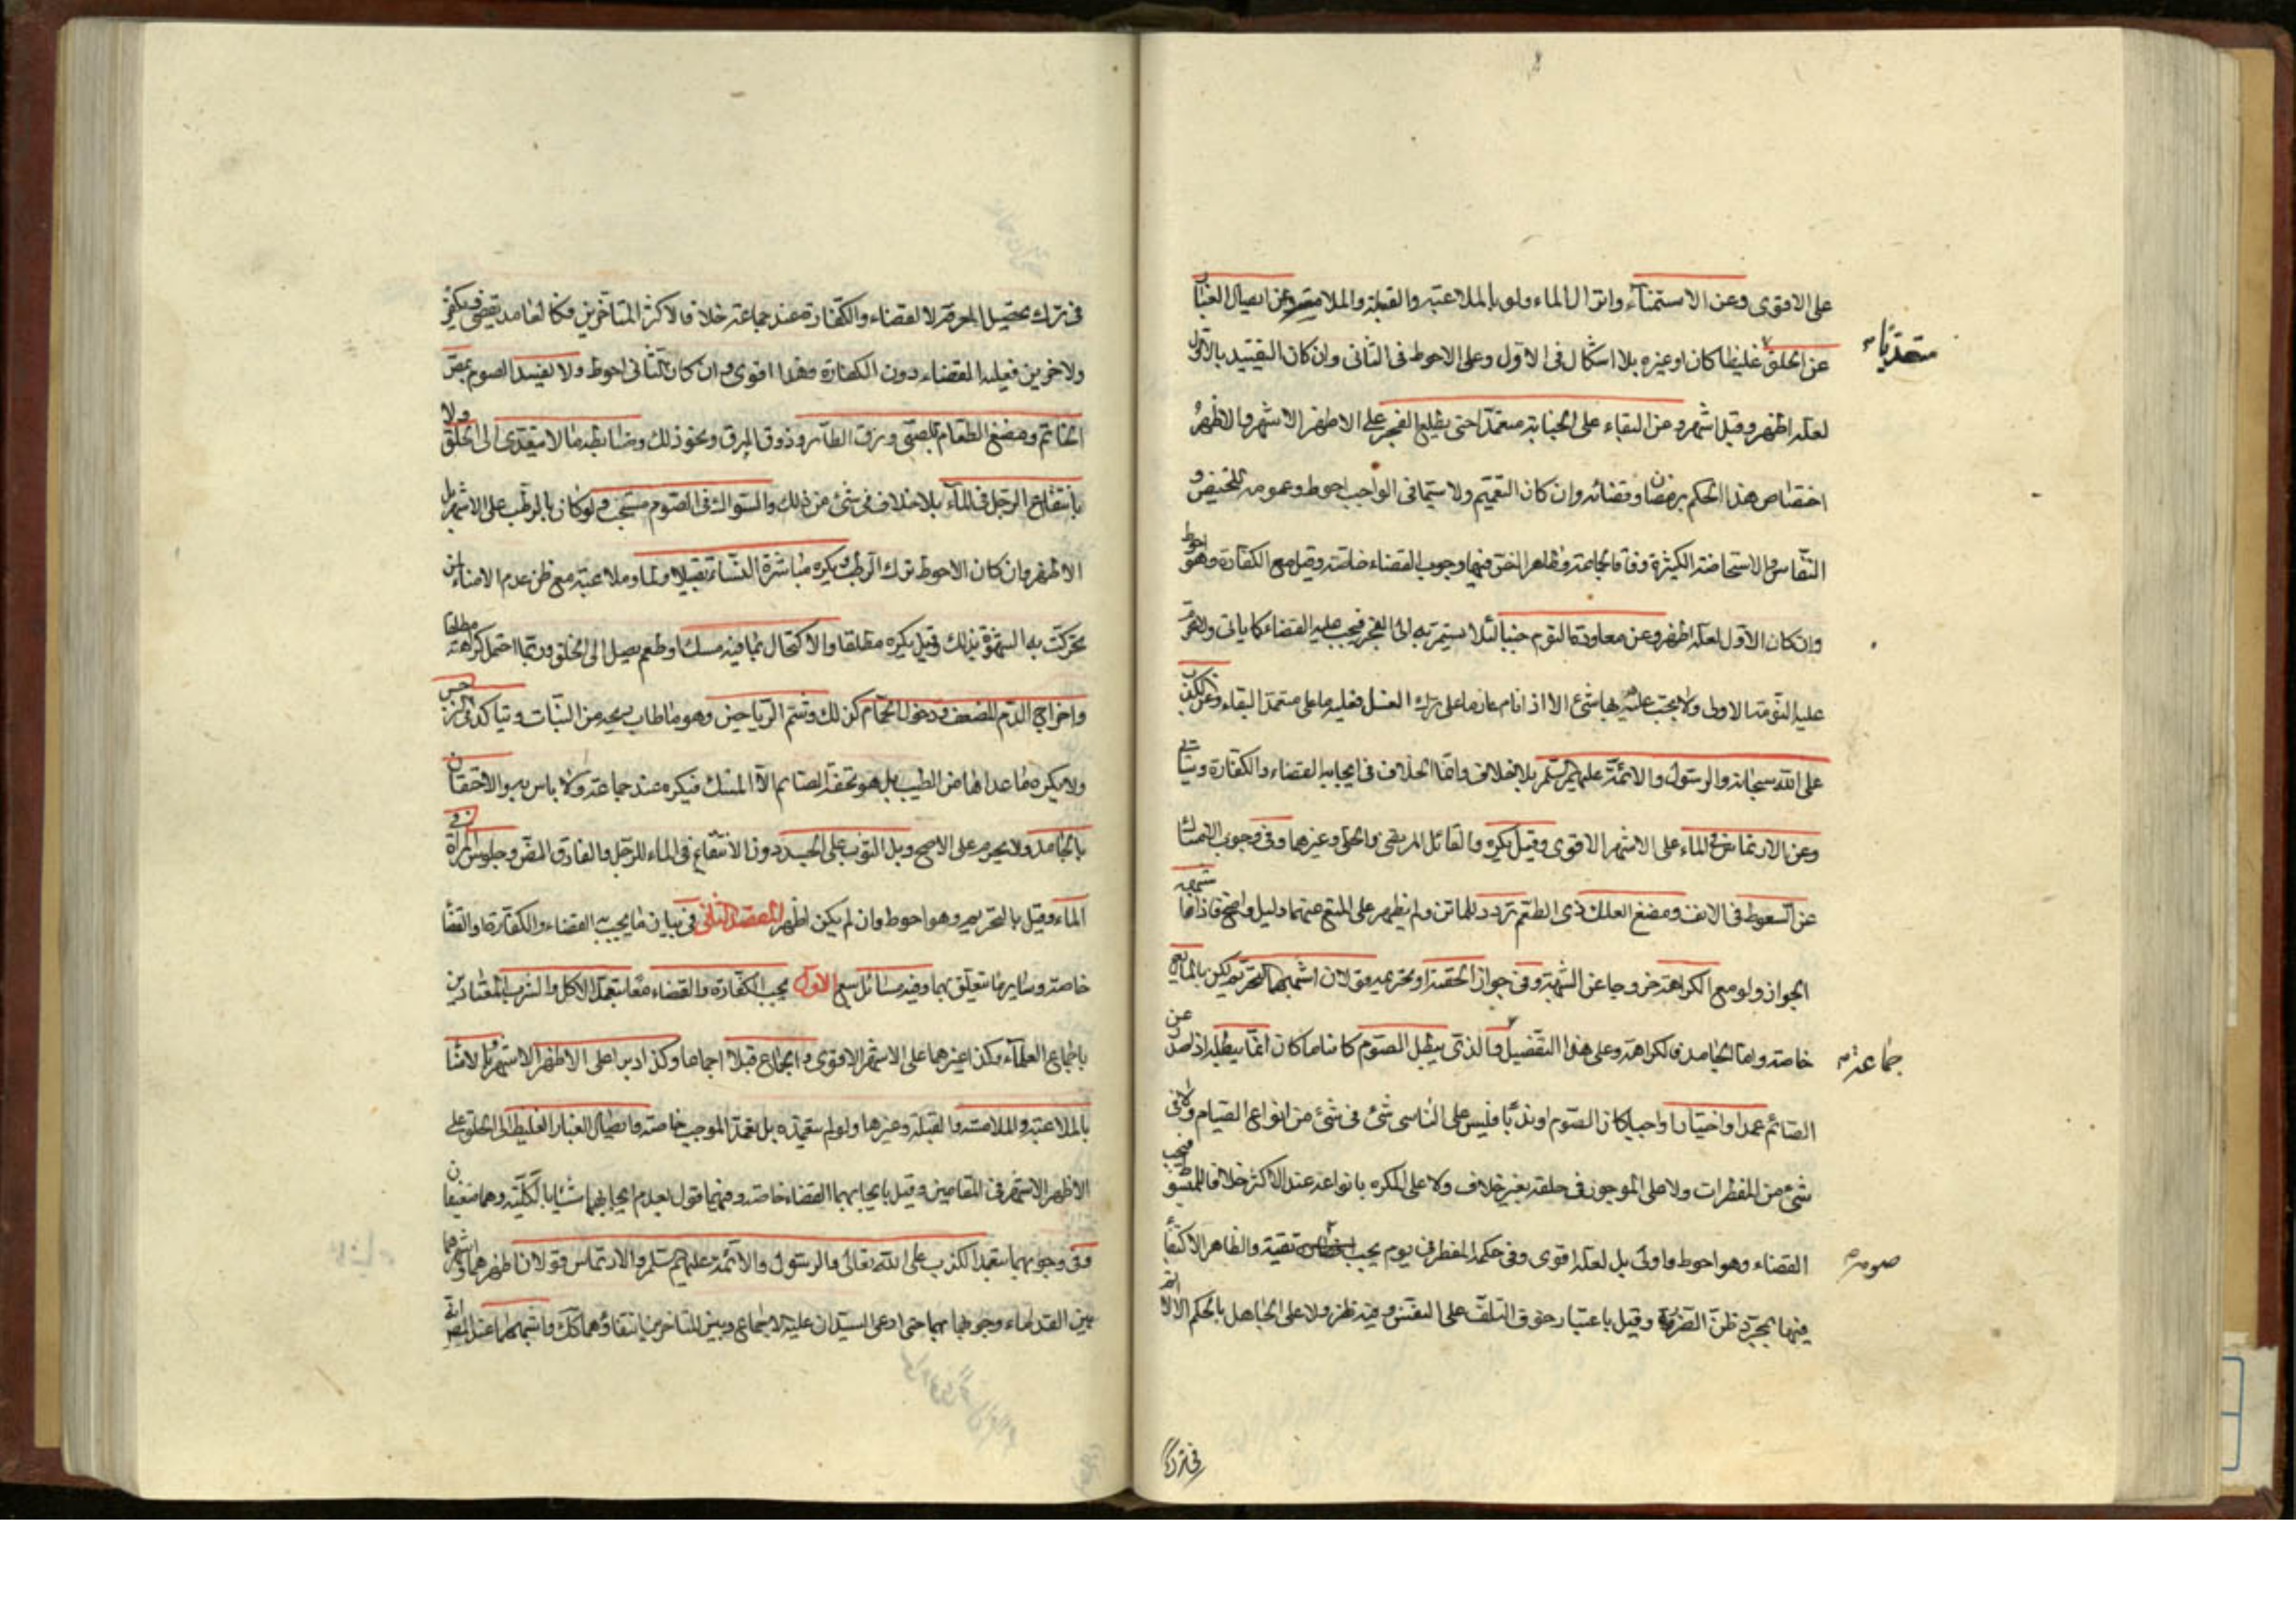 على الاقوى وعن الاستمناء وانزال الماء ولو بالملاعبة والقبلة والملامسة وعن ايصال الغبار
متعديا
عن الحلق غليظا كان او غيره بلا اشكال فى الاول وعلى الاحوط فى الثانى وان كان التقييد بالاول
لعله اظهر وقيل اشهر وعن البقاء على الجنابة متعمدا حتى يطلع الفجر على الاظهر الاشهر والاظهر
اختصاص هذا الحكم برمضان وقضائه وان كان التعميم ولا سيما فى الواجب احوط وعمومه للحيض و
النفاس والاستحاضة الكثيرة وفاقا لجماعة وظاهر فيها وجوب القضاء خاصة وقيل مع الكفارة وهو احوط
وان كان الاول لعله اظهر وعن معاودة النوم جنبا لئلا يستمر به الى الفجر فيجب عليه القضاء كما ياتى
عليه النومة الاولى ولا يجب عليه بها شئ الا اذا نام عازما على ترك الغسل فعليه ما على متعمد البقاء وعن الكذب
على الله سبحانه والرسول والائمة عليهم السلم بلا خلاف وانما الخلاف فى ايجابه القضاء والكفارة وسياتى
وعن الارتماس فى الماء على الاشهر الاقوى وقيل يكره والقائل المرتضى والحلى وغيرهما وفى وجوب الامساك
عن السعوط فى الانف ومضغ العلك ذى الطعم تردد للماتن ولم يظهر على المنع عنهما دليل واضح فاذا
الجواز ولو مع الكراهة خروجا عن الشبهة وفى جواز الحقنة او تحريمه قولان اشبههما التحريم لكن بالمايع
جماعة
خاصة واما الجامد فالكراهة وعلى هذا التفصيل والذى يبطل الصوم كائنا ما كان انما يبطله اذا صدر عن
الصائم عمدا واختيارا واجبا كان الصوم او ندبا فليس على الناسى شئ فى شئ من انواع الصيام ولا فى
شئ من المفطرات ولا على الموجور فى حلقه بغير خلاف ولا على المكره بانواعه عند الاكثر خلافا للمبسوط فيجب
صومه
القضاء وهو احوط واولى بل لعله اقوى وفى حكمه المفطر فى يوم يجب تقية والظاهر الاكتفاء
فيها بمجرد ظن الضرر وقيل باعتبار خوف التلف على النفس وفيه نظر ولا على الجاهل بالحكم
فى ترك
فى ترك تحصيل المعرفة لا القضاء والكفارة عند جماعة خلافا لاكثر المتاخرين فكالعامد يقضى ويكفر
ولاخرين فعليه القضاء دون الكفارة وهذا اقوى وان كان الثانى احوط ولا يفسد الصوم بمص
الخاتم ومضغ الطعام للصبى وزق الطائر وذوق المرق ونحو ذلك وضابطه ما لا يتعدى الى الحلق ولا
باستنقاع الرجل فى الماء بلا خلاف فى شئ من ذلك والسواك فى الصوم مستحب ولو كان بالرطب على الاشهر بل
الاظهر وان كان الاحوط ترك الرطب ويكره مباشرة النساء تقبيلا ولمسا وملاعبة مع ظن عدم الامناء لمن
تحركت به الشهوة بذلك وقيل يكره مطلقا والاكتحال بما فيه مسك او طعم يصل الى الحلق وربما احتمل كراهته مطلقا
واخراج الدم المضعف ودخول الحمام كذلك وشم الرياحين وهو ما طاب ريحه من النبات ويتاكد فى النرجس
ولا يكره ما عداها من الطيب بل هو تحفة الصائم الا المسك فيكره عند جماعة ولا باس به والاحتقان
بالجامد ولا يحرم على الاصح وبل الثوب على الجسد دون الانتقاع فى الماء للرجل والفارق النص وجلوس المرأة فى
الماء وقيل بالتحريم وهو احوط وان لم يكن اظهر المقصد الثانى فى بيان ما يجب به القضاء والكفارة او القضاء
خاصة وساير ما يتعلق بهما وفيه مسائل سبع الاول يجب الكفارة والقضاء معا بتعمد الاكل والشرب المعتادين
باجماع العلماء وكذا غيرهما على الاشهر الاقوى والجماع قبلا اجماعا وكذا دبرا على الاظهر الاشهر والامناء
بالملاعبة والملامسة والقبلة وغيرها ولو لم يتعمده بل تعمد الموجب خاصة وايصال الغبار الغليظ الى الحلق على
الاظهر الاشهر فى المقامين وقيل بايجابهما القضاء خاصة وفيهما قول بعدم ايجابهما شيئا بالكلية وهما ضعيفان
وفى وجوبهما بتعمد الكذب على الله تعالى والرسول والائمة عليهم السلم والارتماس قولان اظهرهما واشهرهما
بين القدماء وجوبهما بهما حتى ادعى السيدان عليه الاجماع وبين المتاخرين انتفاؤهما كك واشبههما عند المصر